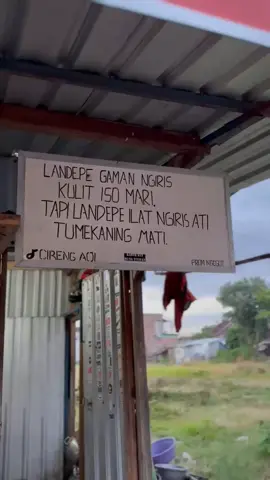 LANDEPE GAMAN NGIRIS
KULIT ISO MARI,
TAPI LANDEPE ILAT NGIRIS ATI
TUMEKANING MATI.
CIRENG AOI